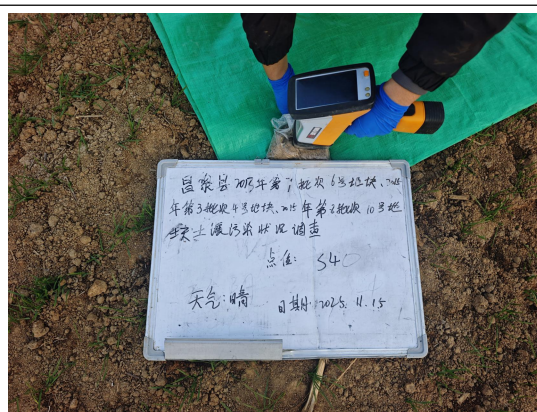 昌黎县2025年第7批次6号地块、2025
年第3批次4号地块、2025年第2批次10号地
块土壤污染状况调查
点位: S40
天气:晴 日期:2025.11.15